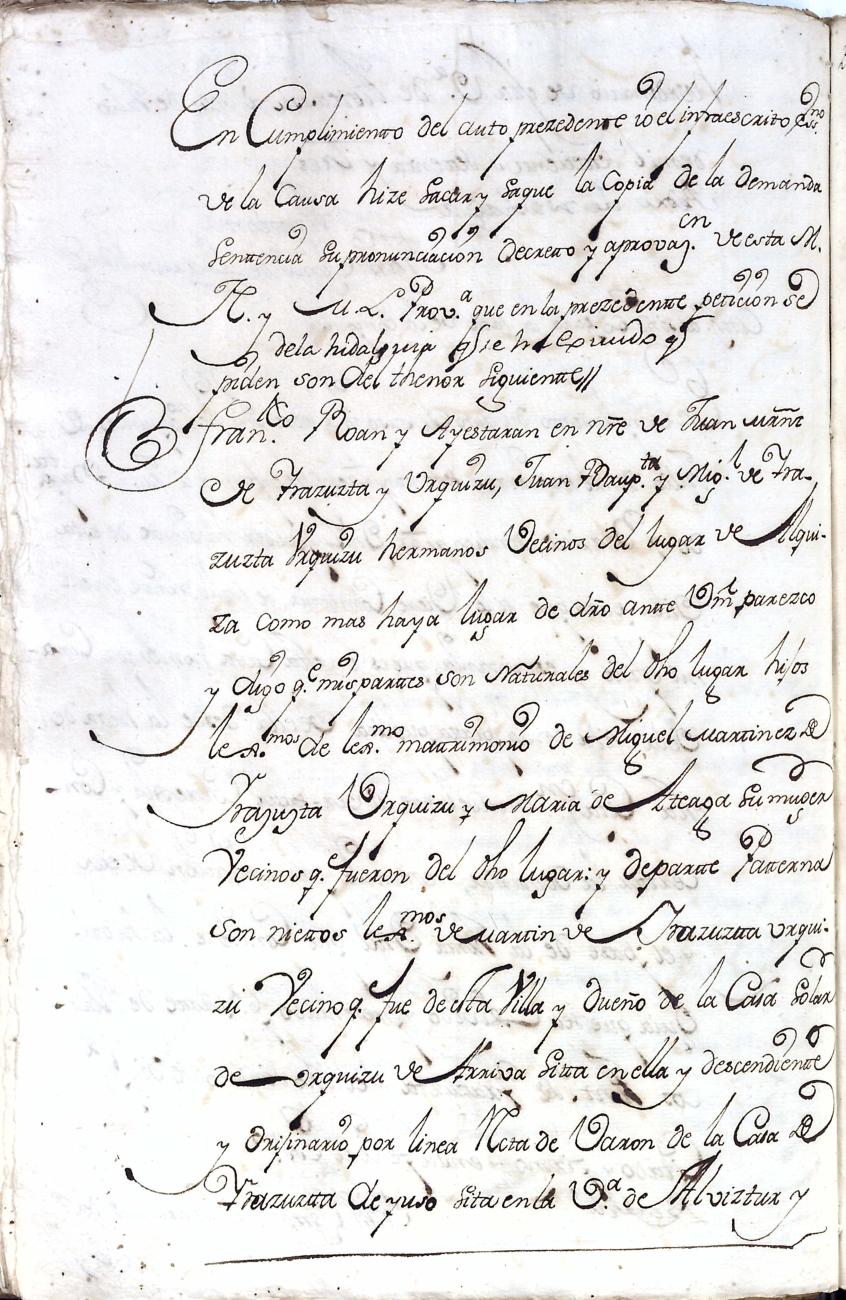 En Cumplimiento del auto prezedente io el infraescrito ssno
de la Causa hize sacar y saque la Copia de la demanda
sentencia su pronunciacion Decreto y aprovaz.cn de esta M.
N. y M. L. Prov.a que en la prezedente petizion se
de la hidalguia
piden son del thenor siguiente//
Fran.co Roan y Ayestaran en nre de Juan Mrnz
de Irazuzta y Urquizu, Juan Baup.ta y Mig.l de Ira-
zuzta Urquizu hermanos Vecinos del lugar de Alqui-
za como mas haya lugar de dro ante Vm parezco
y digo q.e mis partes son Naturales del dho lugar hijos
lex.mos de lex.mo matrimonio de Miguel Martinez de
Irazuzta Urquizu y Maria de Ateaga su muger
Vecinos q.e fueron del dho lugar: y de parte Paterna
son nietos lex.mos de Martin de Irazuzta Urqui-
zu Vecino q. fue de esta Villa y dueño de la Casa solar
de Urquizu de Arriva sita en ella y descendiente
y orijinario por linea Recta de Varon de la Casa de
Irazuzta de yuso sita en la V.a de Alviztur y